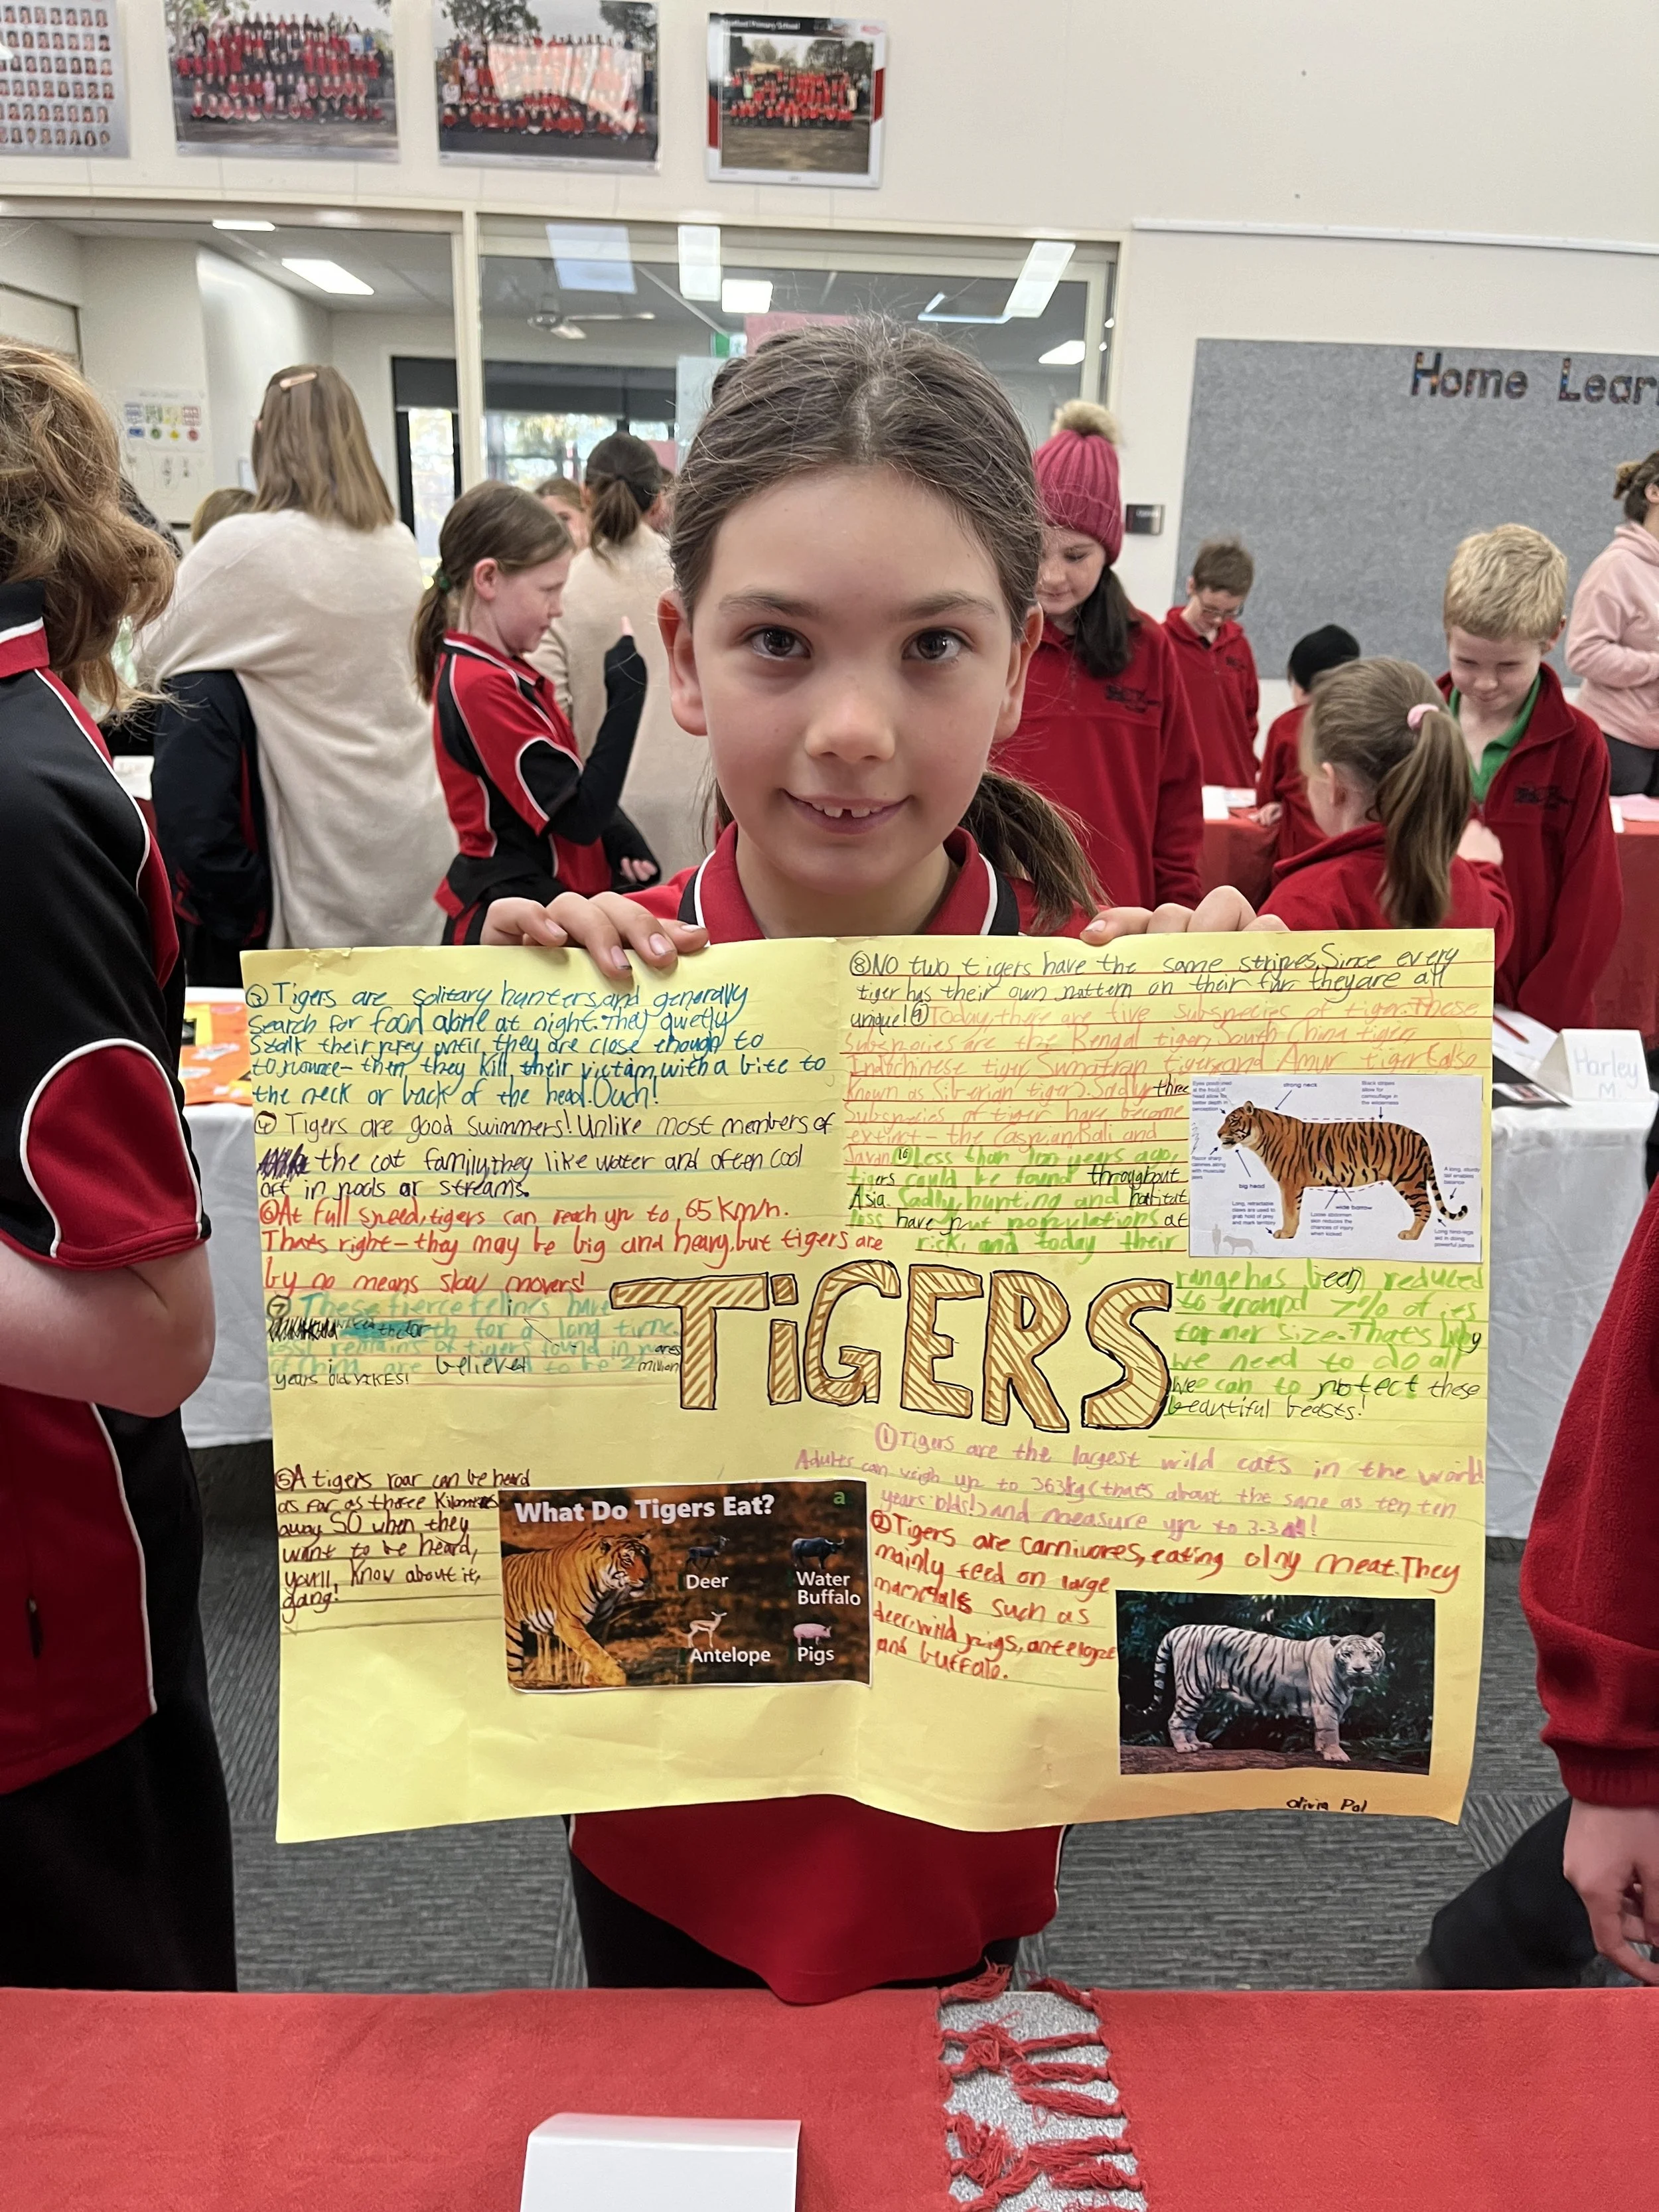 Home Lear
Harley
M
③ Tigers are solitary hunters, and generally
search for food alone at night. They quietly
stalk their prey until they are close enough to
to pounce - then they kill their victim with a bite to
the neck or back of the head. Ouch!
④ Tigers are good swimmers! Unlike most members of
the cat family, they like water and often cool
off in pools or streams.
⑥ At full speed, tigers can reach up to 65 km/h.
That's right - they may be big and heavy, but tigers are
by no means slow movers!
⑦ These fierce felines have
for a long time.
fossil remains of tigers found in
of China are believed to be 2 million
years old YIKES!
⑤ A tigers roar can be heard
as far as three Kilometres
away SO when they
want to be heard,
you'll know about it,
gang!
What Do Tigers Eat?
a
Deer
Water
Buffalo
Antelope
Pigs
TiGERS
⑧ NO two tigers have the same stripes. Since every
tiger has their own pattern on their fur, they are all
unique! ⑨ Today, there are five subspecies of tiger. These
subspecies are the Bengal tiger, South China tiger,
Indochinese tiger Sumatran tiger and Amur tiger (also
known as Siberian tiger). Sadly three
Subspecies of tiger have become
extinct - the Caspian, Bali and
Javan. Less than 100 years ago,
tigers could be found throughout
Asia. Sadly, hunting and habitat
loss have put populations at
risk, and today their
range has been reduced
to around 7% of its
former size. That's why
we need to do all
we can to protect these
beautiful beasts!
strong neck
big head
wide barrow
① Tigers are the largest wild cats in the world
Adults can weigh up to 363kg (thats about the same as ten ten
years olds!) and measure up to 3.3
② Tigers are carnivores, eating olny meat. They
mainly feed on large
mammals such as
deer, wild pigs, antelope
and buffalo.
olivia Pal